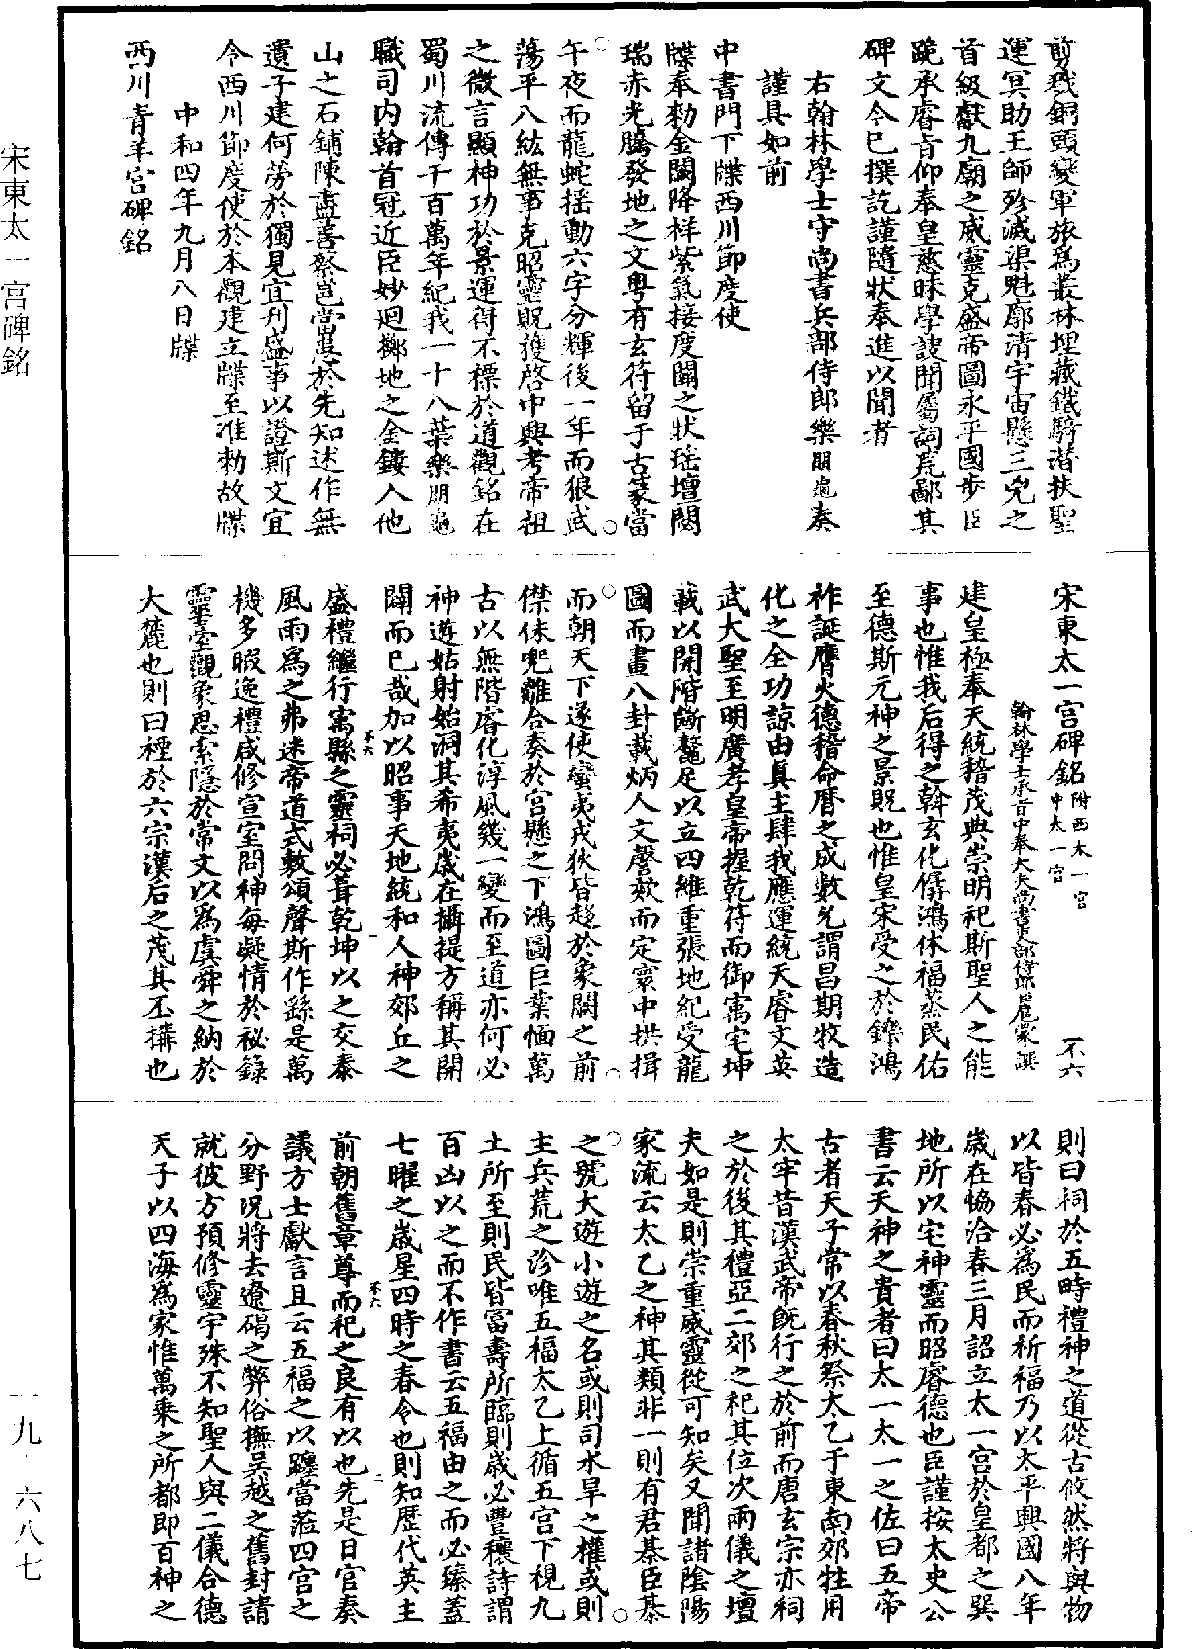 剪我銅頭變軍旅爲叢林埋藏鐵騎潜扶聖
運冥助王師殄滅渠魁廓清宇宙懸三兇之
首級獻九廟之威靈克盛帝圖永平國步臣
跪承睿旨仰奉皇慈昧學謏聞屬詞荒鄙其
碑文今已撰訖謹隨狀奉進以聞者
右翰林學士守尚書兵部侍郎樂朋龜奏
謹具如前
中書門下牒西川節度使
牒奉勑金闕降祥紫氣接度關之狀瑶壇閟
瑞赤光騰發地之文粵有玄符留于古篆當
午夜而龍蛇摇動六字分輝後一年而狼武
蕩平八紘無事克昭靈貺獲啓中興考帝祖
之微言顯神功於景運得不標於道觀銘在
蜀川流傳千百萬年紀我一十八葉樂朋龜
職司内翰首冠近臣妙迴擲地之金鏤人他
山之石鋪陳盡善祭豈當於先知述作無
遺子建何勞於獨見宜刊盛事以證斯文宜
令西川節度使於本觀建立牒至准勑故牒
中和四年九月八日牒
西川青羊宫碑銘
宋東太一宫碑銘附西太一宫中太一宫 不六
翰林學士承旨中奉大夫尚書吏部侍郎扈蒙撰
建皇極奉天統稽茂典崇明祀斯聖人之能
事也惟我后得之幹玄化儔鴻休福蒸民佑
至德斯元神之景貺也惟皇宋受之於鑠鴻
祚誕膺火德稽命曆之成數允謂昌期牧造
化之全功諒由真主肆我應運統天睿文英
武大聖至明廣孝皇帝握乾符而御㝢宅坤
載以開階斷鼇足以立四維重張地紀受龍
圖而畫八卦載炳人文謦欬而定寰中拱揖
而朝天下遂使蠻夷戎狄皆趍於象闕之前
傑侏兜離合奏於宫懸之下鴻圖巨葉愐萬
古以無階睿化淳風幾一變而至道亦何必
神遊姑射始洞其希夷歲在攝提方稱其開
闢而已哉加以昭事天地統和人神郊丘之
盛禮繼行寓縣之靈祠必葺乾坤以之交泰
風雨爲之弗迷帝道式敷頌聲斯作繇是萬
機多暇逸禮咸修宣室問神每凝情於祕録
靈臺觀象思索隱於常文以爲虞舜之納於
大麓也則曰禋於六宗漢后之茂其丕搆也
則曰祠於五時禮神之道從古攸然將與物
以皆春必爲民而祈福乃以太平興國八年
歲在恊洽春三月詔立太一宫於皇都之巽
地所以宅神靈而昭睿德也臣謹按太史公
書云天神之貴者曰太一太一之佐曰五帝
古者天子常以春秋祭太乙于東南郊牲用
太牢昔漢武帝既行之於前而唐玄宗亦祠
之於後其禮亞二郊之祀其位次兩儀之壇
夫如是則崇重威靈從可知矣又聞諸陰陽
家流云太乙之神其類非一則有君綦臣綦
之號大遊小遊之名或則司水旱之權或則
主兵荒之沴唯五福太乙上循五宫下視九
土所至則民皆富壽所臨則歲必豐穰詩謂
百凶以之而不作書云五福由之而必臻蓋
七曜之歲星四時之春令也則知歷代英主
前朝舊章尊而祀之良有以也先是日官奏
議方士獻言且云五福之以躔當蒞四宫之
分野况將去遼碣之弊俗撫吴越之舊封請
就彼方預修靈宇殊不知聖人與二儀合德
天子以四海爲家惟萬乘之所都即百神之
宋東太一宫碑銘
一九·六八七